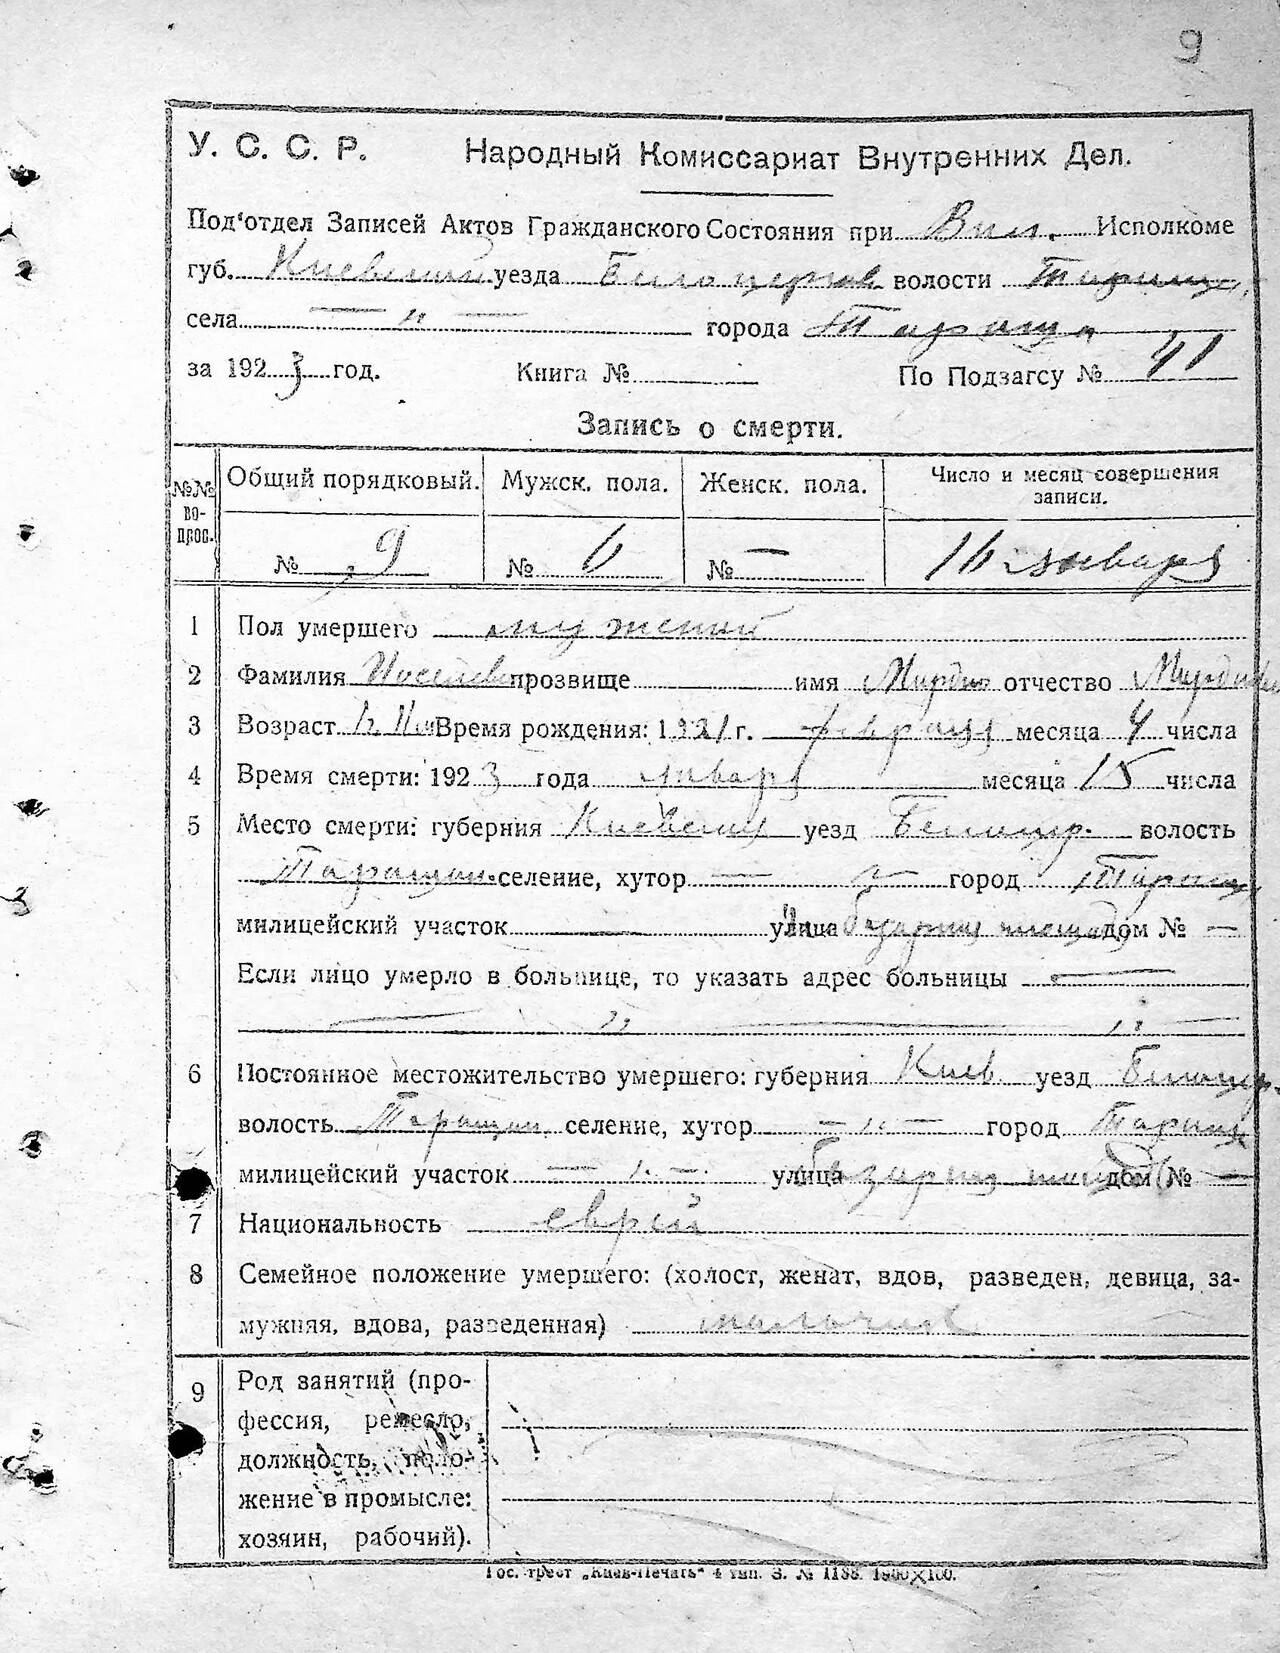 9
У. С. С. Р. Народный Комиссариат Внутренних Дел.
Под'отдел Записей Актов Гражданского Состояния при Вил. Исполкоме
губ. Киевской уезда Белоцерков волости Таращ.
села — " — города Тараща
за 1923 год. Книга № По Подзагсу № 41
Запись о смерти.
№№ вопрос. Общий порядковый. Мужск. пола. Женск. пола. Число и месяц совершения записи.
№ 9 № 6 № — 16 января
1 Пол умершего мужской
2 Фамилия прозвище имя отчество
3 Возраст Время рождения: 1921 г. февраля месяца 4 числа
4 Время смерти: 1923 года января месяца 15 числа
5 Место смерти: губерния Киевская уезд Белоцер. волость
Таращан. селение, хутор — " — город Тараща
милицейский участок — улица базарная площадь дом № —
Если лицо умерло в больнице, то указать адрес больницы —
— " — " —
6 Постоянное местожительство умершего: губерния Киев уезд Белоцер.
волость Таращан. селение, хутор — " — город Тараща
милицейский участок — " — улица базарная площадь дом № —
7 Национальность еврей
8 Семейное положение умершего: (холост, женат, вдов, разведен, девица, за-
мужняя, вдова, разведенная) мальчик
9 Род занятий (про-
фессия, ремесло,
должность, поло-
жение в промысле:
хозяин, рабочий).
Гос. трест „Киев-Печать" 4 тип. З. № 1188. 1900×100.